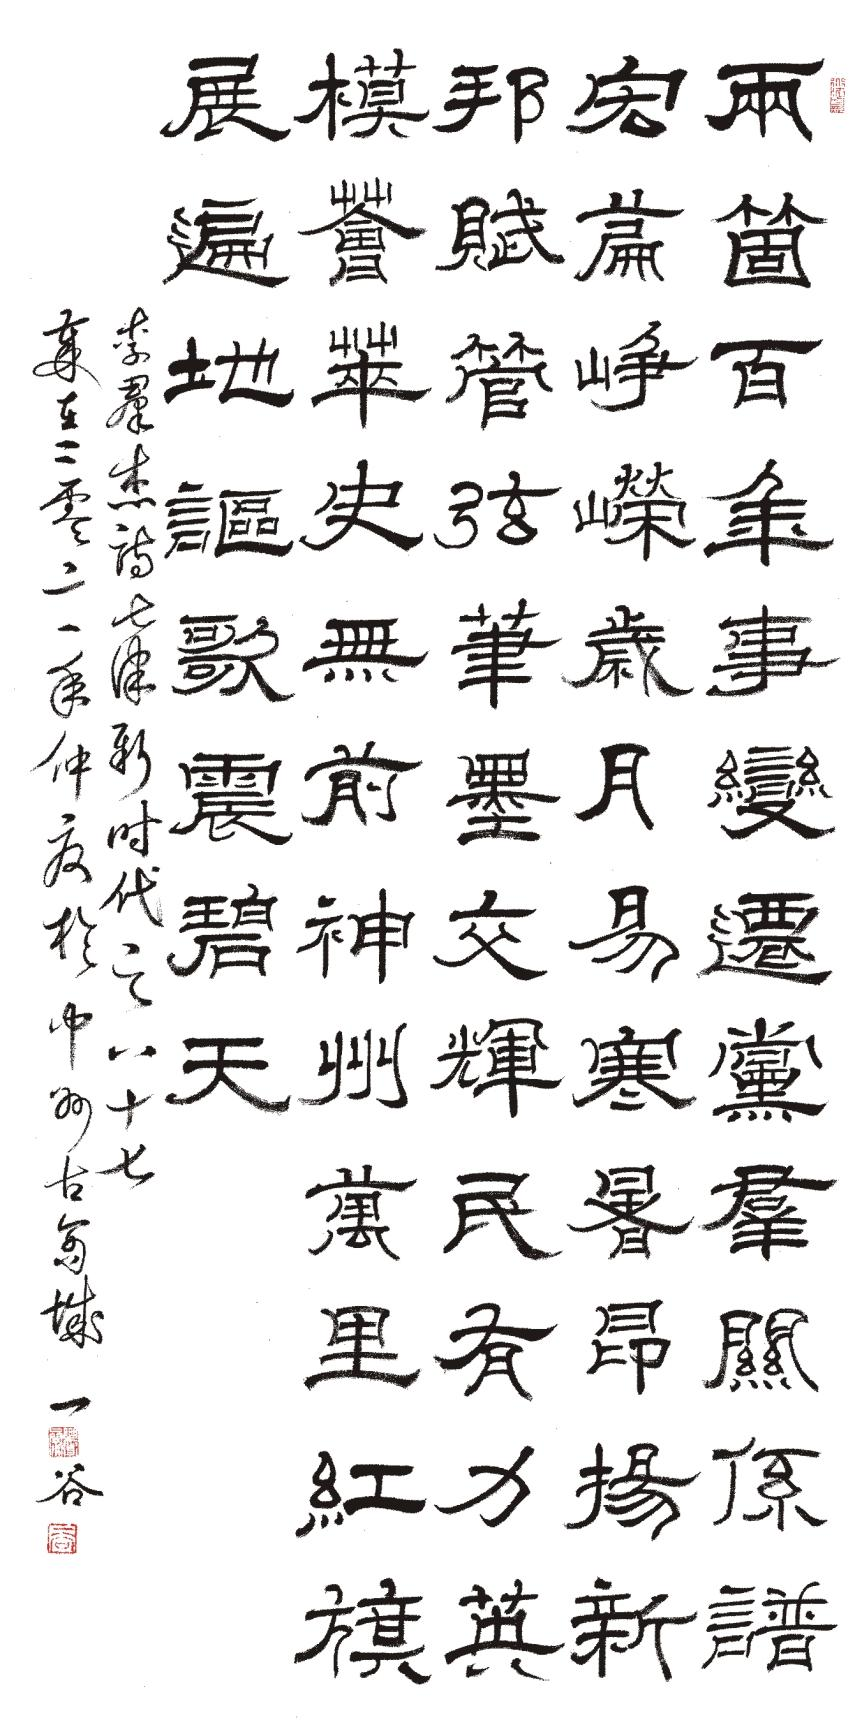 兩箇百年事變遷黨羣關係譜
宏篇崢嶸歲月易寒暑昂揚新
邦賦管弦筆墨交輝民有力英
模薈華史無前神州萬里紅旗
展遍地謳歌震碧天
李羣杰詩七律新时代之八十七
在二零二一年仲夏於中州古商城 一谷